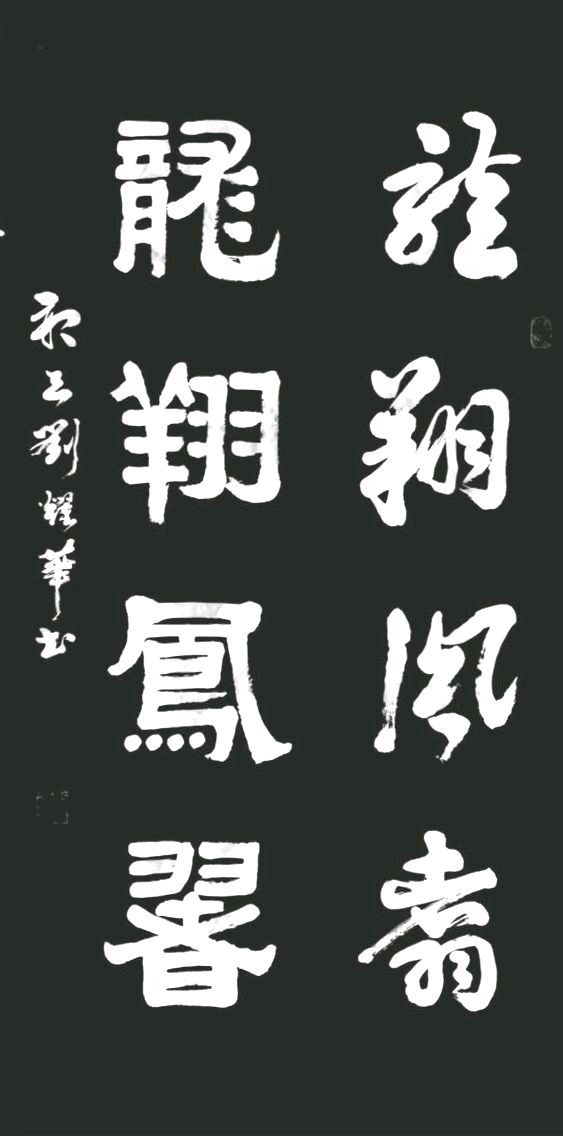 龍翔鳳翥
龍翔鳳翥
劉耀華書